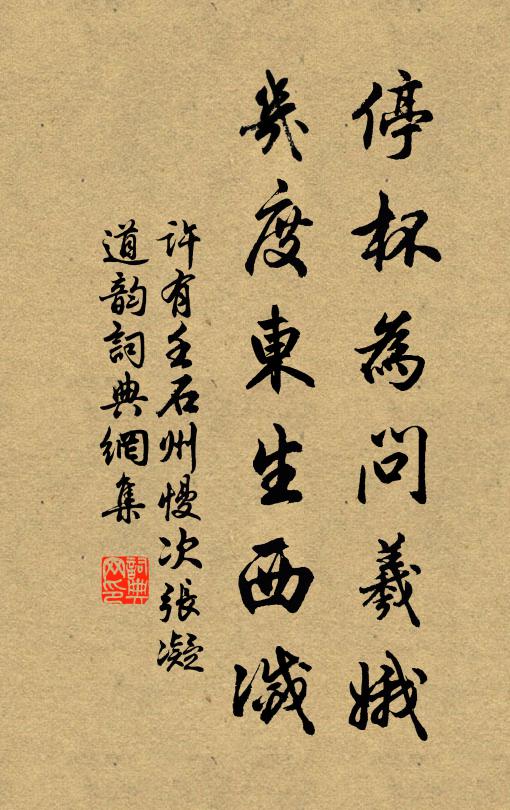 停杯為問羲娥
幾度東生西滅
許有壬石州慢次張凝
道韵詞典網集
詞典网印